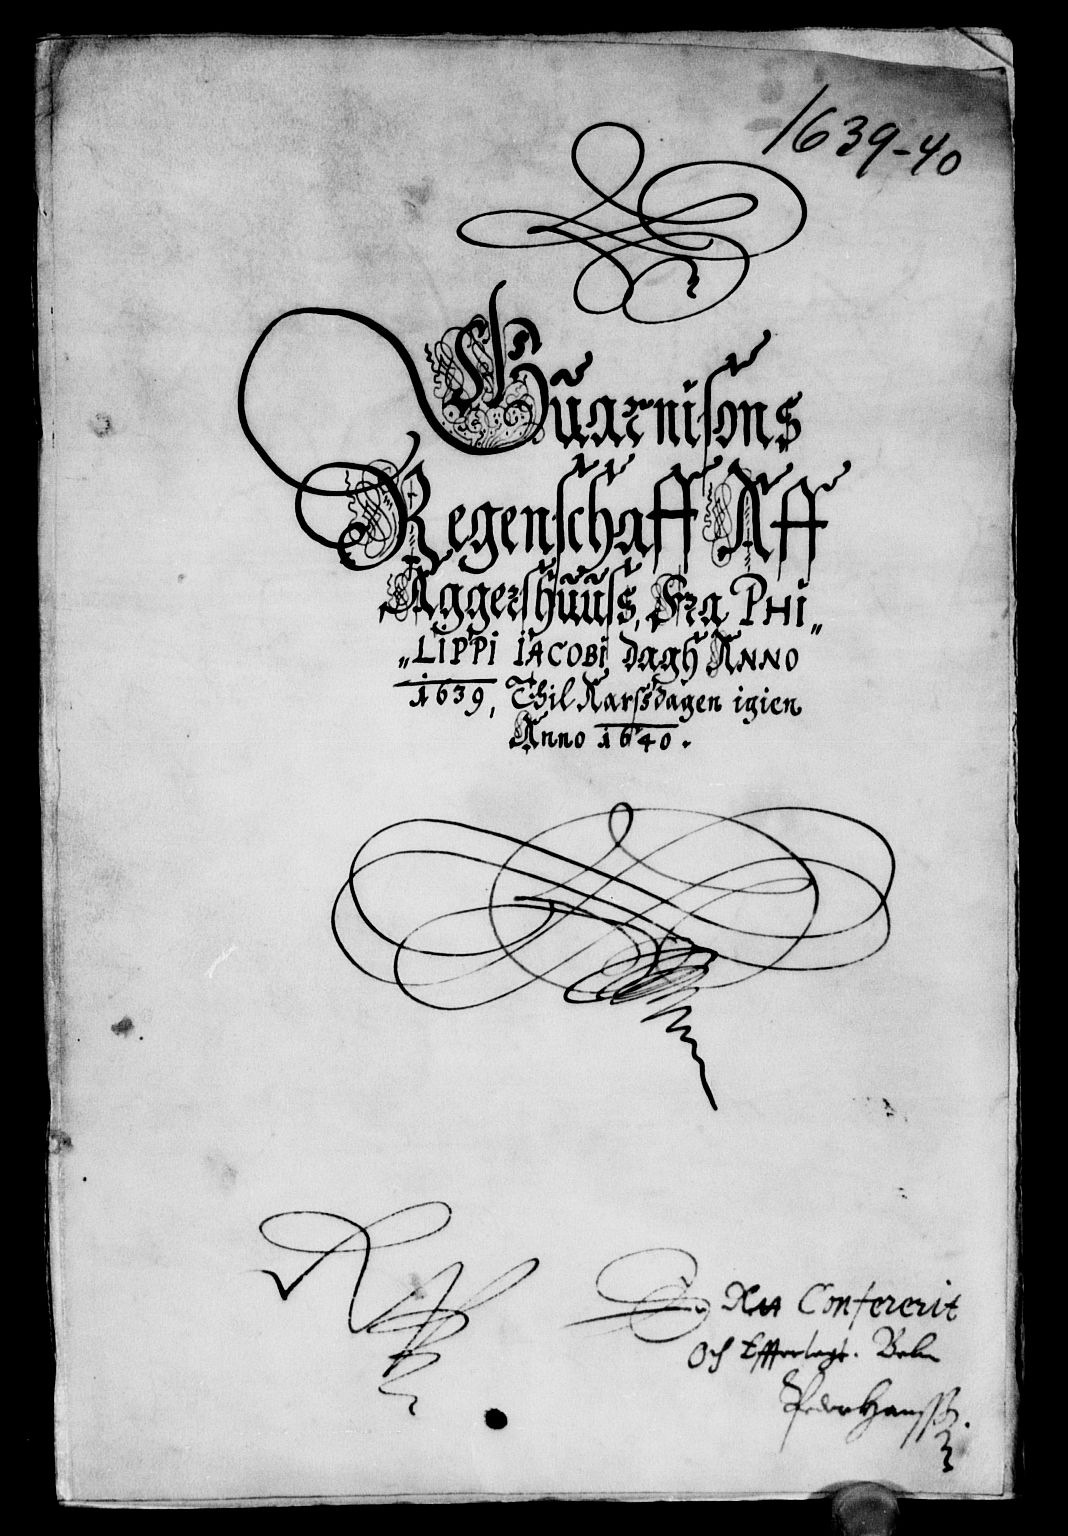 1639-40
Guarnisons
Regenschaff Aff
Aggershuuss, Fra PHI„
„LIPPI IACOBI dagh ANNO
1639, Thil Aarssdagen igien
Anno 1640.
Conferérit
Och
Peder Hanss